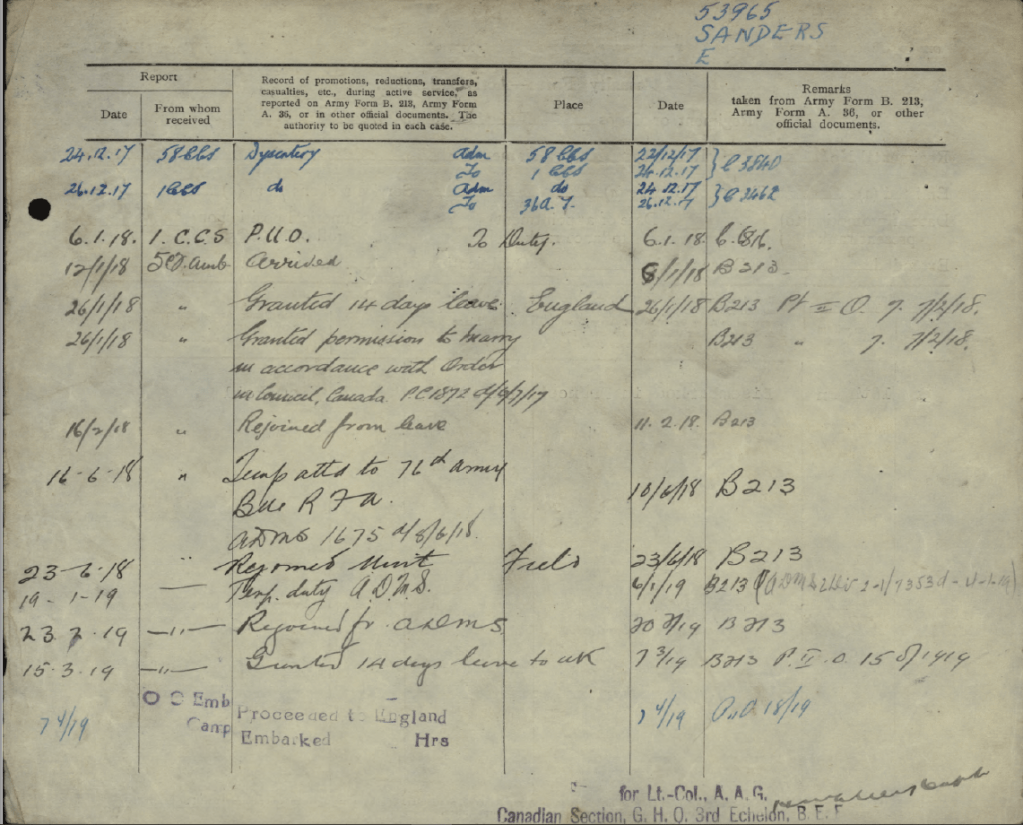 53965
SANDERS
E
Report
Date
From whom received
Record of promotions, reductions, transfers,
casualties, etc., during active service, as
reported on Army Form B. 213, Army Form
A. 36, or in other official documents. The
authority to be quoted in each case.
Place
Date
Remarks
taken from Army Form B. 213,
Army Form A. 36, or other
official documents.
24.12.17 58 CCS Dysentery Adm 58 CCS 22/12/17
To 1 CCS 24.12.17
26.12.17 1 CCS do Adm do 24.12.17
To 26.12.17
6.1.18. 1. C.C.S P.U.O. To Duty. 6.1.18.
12/1/18 Arrived /1/18 B213.
26/1/18 " Granted 14 days leave England 26/1/18 B213 Pt II O. 7. 7/2/18.
26/1/18 " Granted permission to marry B213 " 7. 7/2/18.
in accordance with Order
in Council, Canada PC1872
16/2/18 " Rejoined from leave 11.2.18. B213
16-6-18 " Temp attd to 76th Army 10/6/18 B213
Bde R F A.
ADMS 1675 d/8/6/18.
23-6-18 " Rejoined Unit Field 23/6/18 B213
19-1-19 Temp. duty A.D.M.S. /1/19 B213
23.2.19 —"— Rejoined fr. ADMS B213
15.3.19 —"— Granted 14 days leave to UK 7 3/19 B213 P. II. O. 15
7 4/19 O C Emb Proceeded to England 7 4/19 18/19
Camp Embarked Hrs
for Lt.-Col., A. A. G.
Canadian Section, G. H. Q. 3rd Echelon, B. E. F